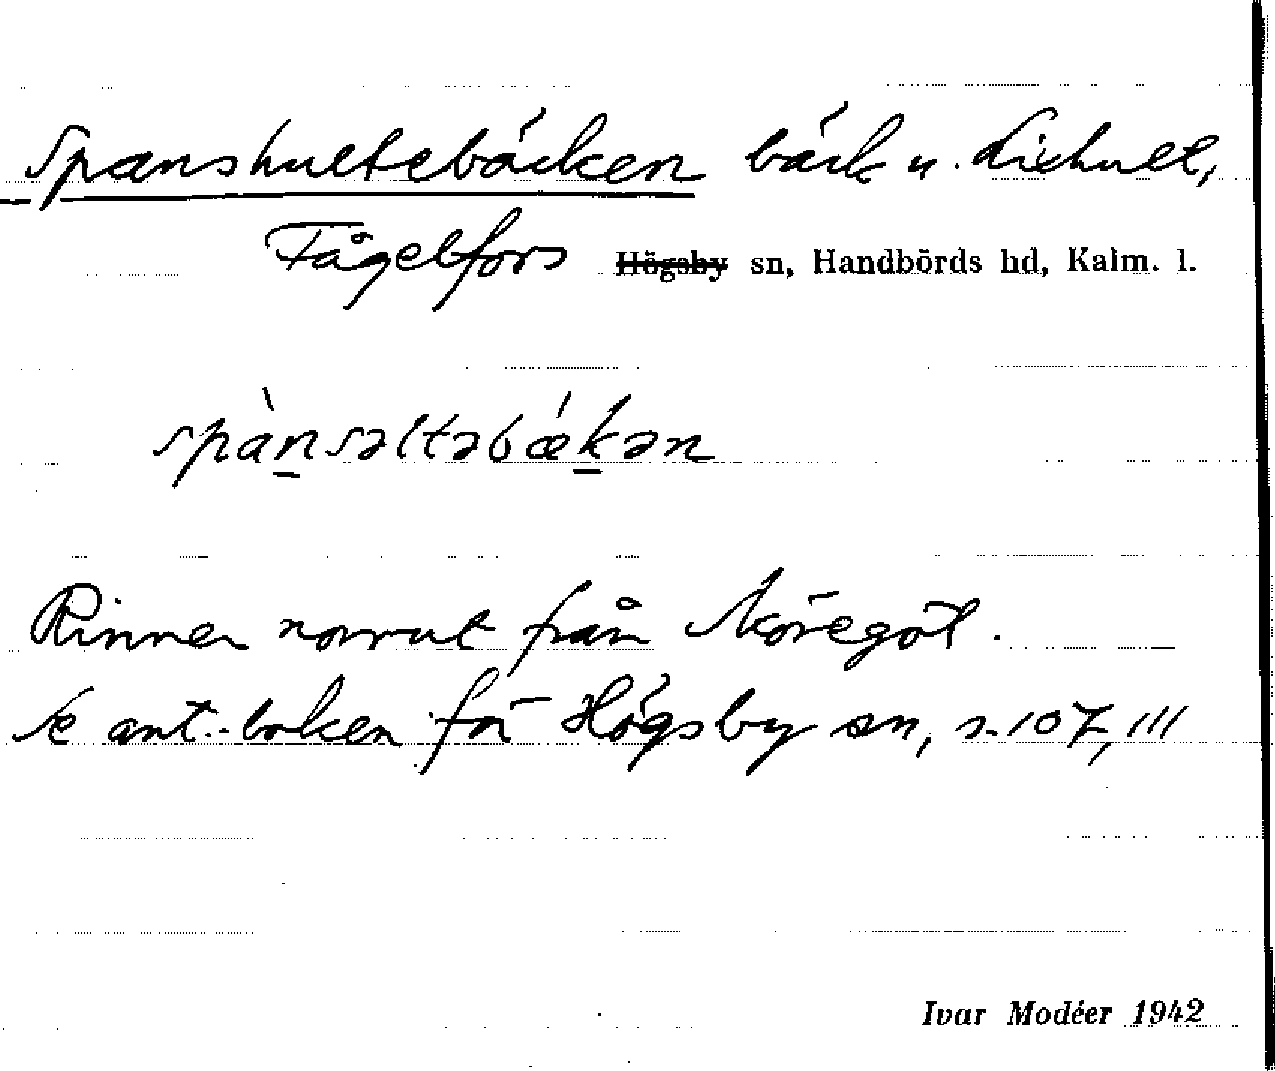 Spanshultebäcken bäck u. Liehult,
Fågelfors Högsby sn, Handbörds hd, Kalm. l.
spànsəltəbǽkən
Rinner norrut från Noregöl.
Se ant.-boken för Högsby sn, s. 107, III
Ivar Modéer 1942